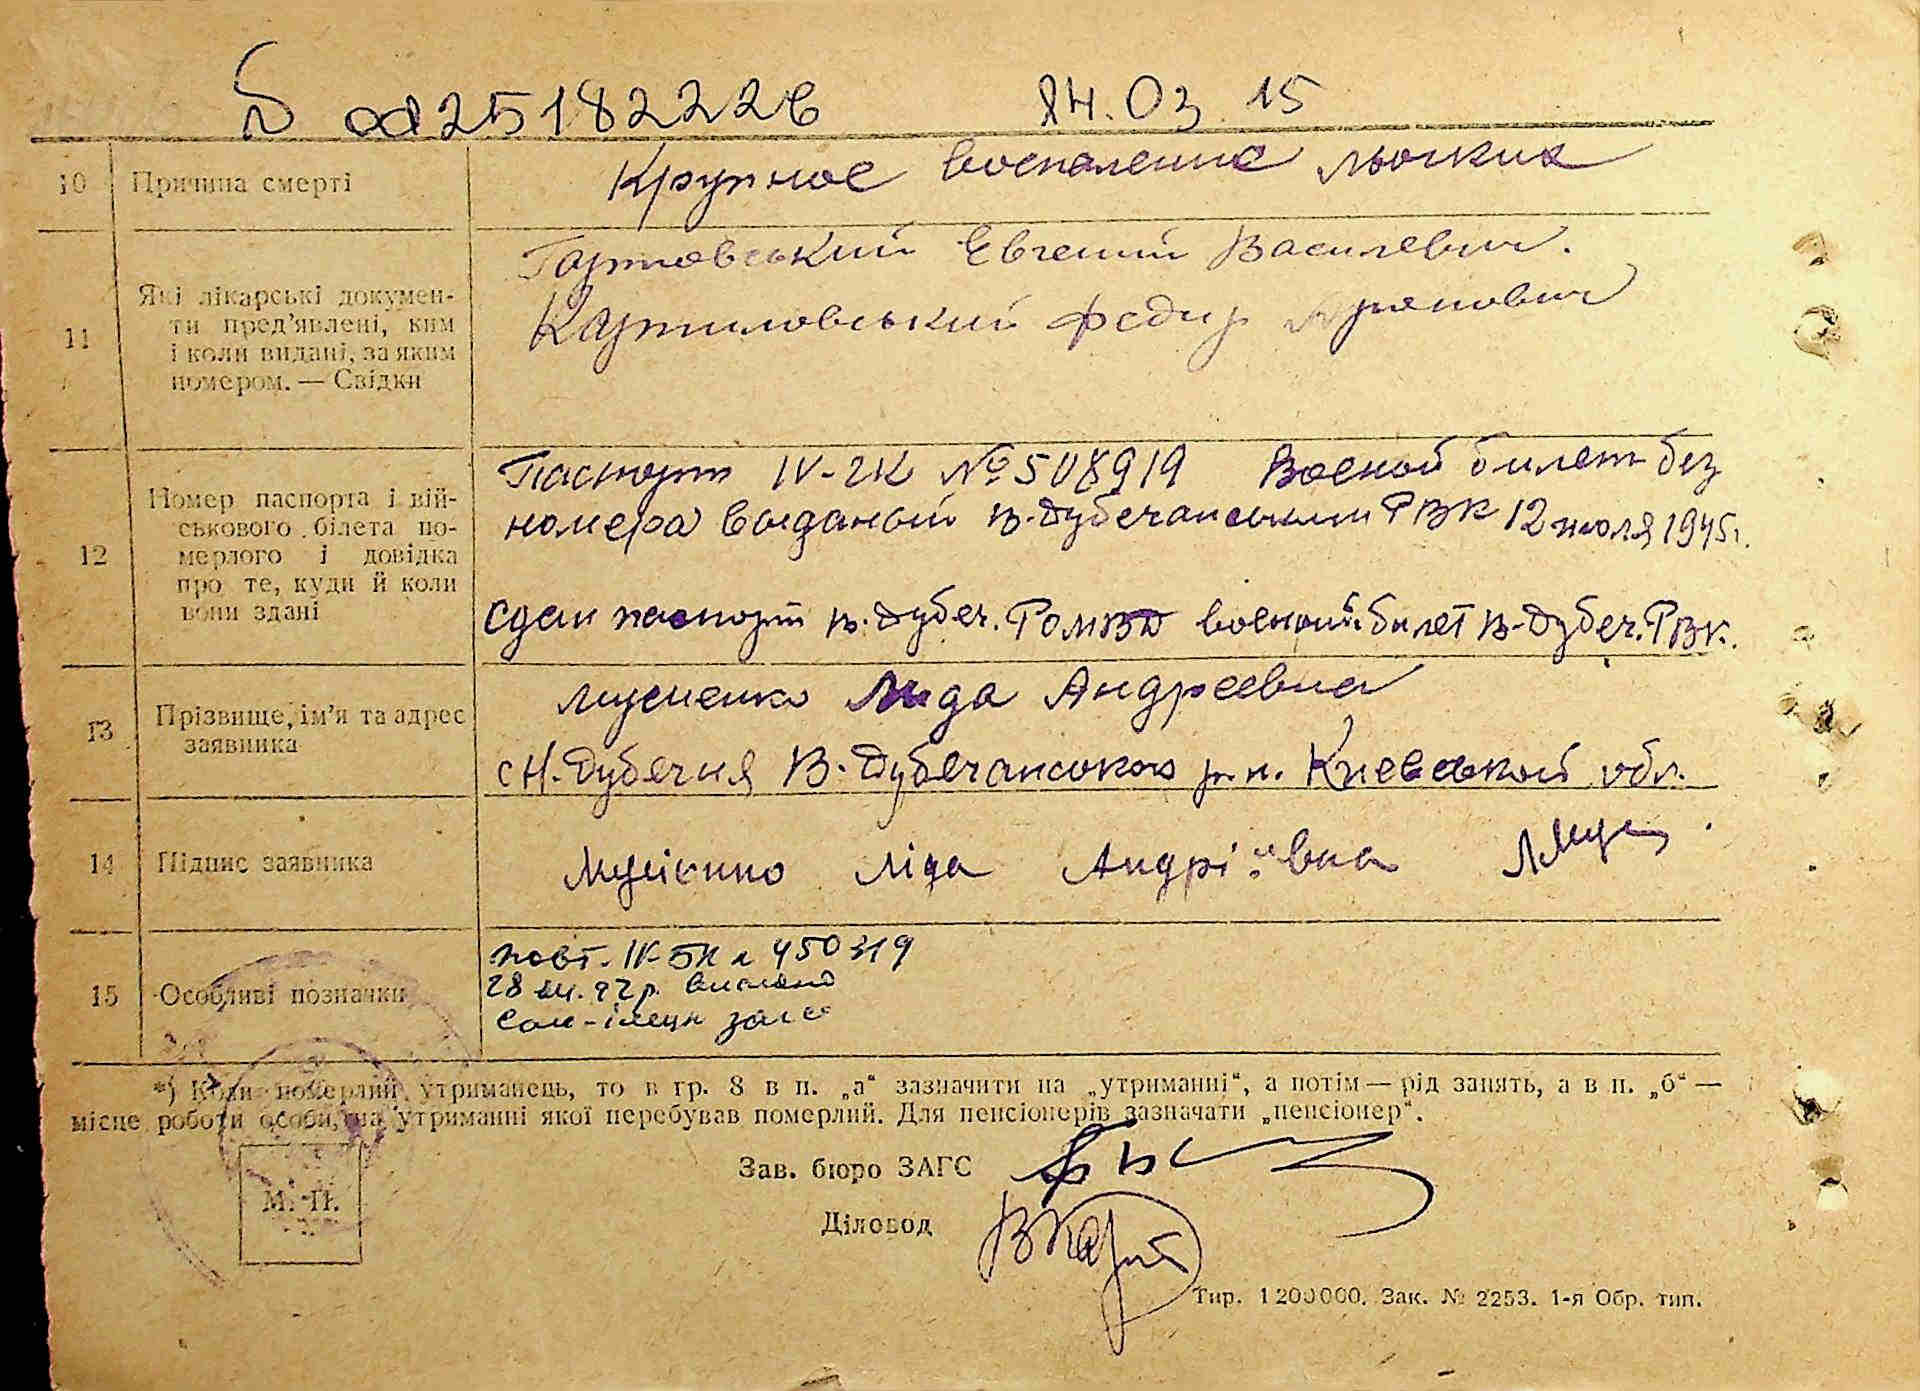 25182226 03 15
10 Причина смерті Крупное воспаление льогких
11 Які лікарські докумен-
ти пред'явлені, ким
і коли видані, за яким
номером. — Свідки
Євгений Василевич.
Федир
12 Номер паспорта і вій-
ськового білета по-
мерлого і довідка
про те, куди й коли
вони здані
Паспорт IV-ГК № 508919 Военой билет без
номера выданый В-Дубечанським РВК 12 июля 1945г.
Сдан паспорт В-Дубеч. РОМВД военый билет В-Дубеч. РВК.
13 Прізвище, ім'я та адрес
заявника
Мусиенко Лида Андреевна
с Н-Дубечня В-Дубечанского р-н. Киевской обл.
14 Підпис заявника Ліда Андріївна
15 Особливі позначки
повт. 450319
28
загс
*) Коли померлий утриманець, то в гр. 8 в п. „а“ зазначити на „утриманні“, а потім — рід занять, а в п. „б“ —
місце роботи особи, на утриманні якої перебував померлий. Для пенсіонерів зазначати „пенсіонер“.
Зав. бюро ЗАГС
М. П.
Діловод
Тир. 1200000. Зак. № 2253. 1-я Обр. тип.